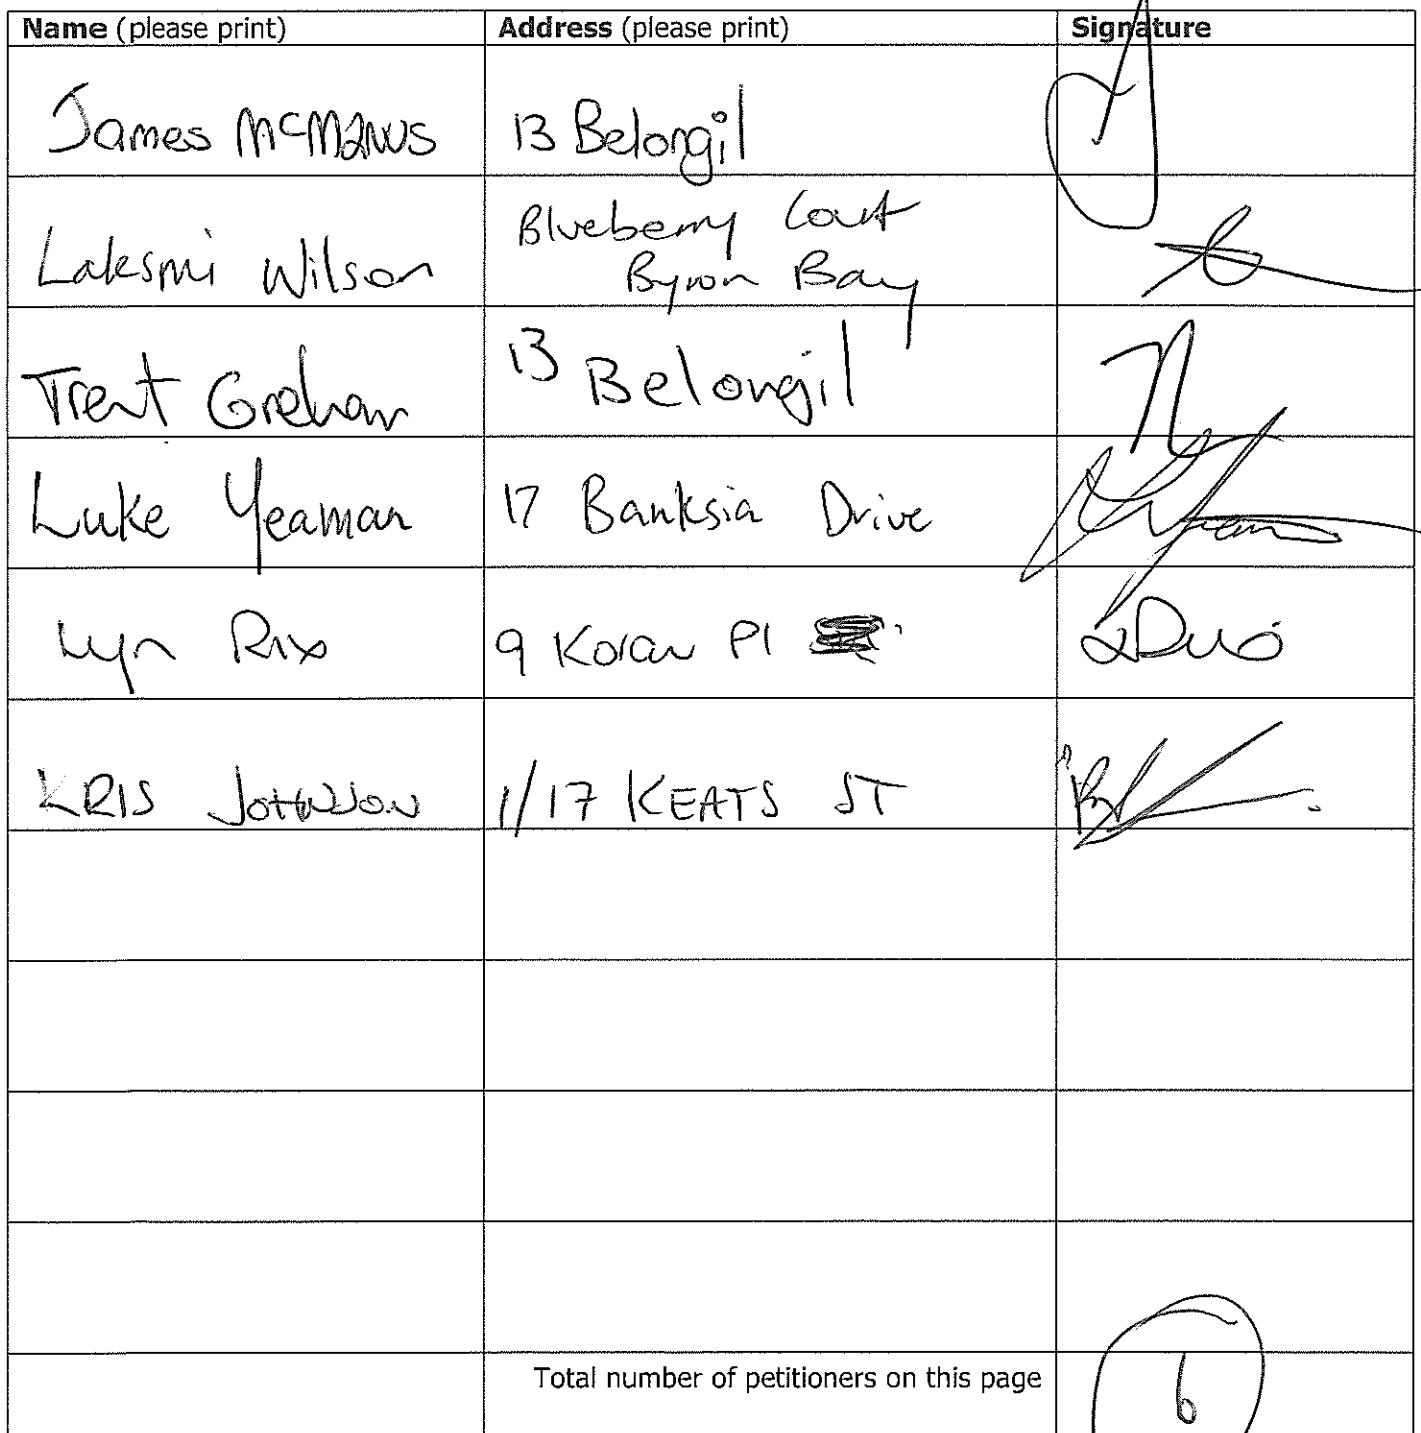 Name (please print) Address (please print) Signature
James McManus 13 Belongil
Lakesmi Wilson Blueberry Court
Byron Bay
Trent Graham 13 Belongil
Luke Yeaman 17 Banksia Drive
Lyn Rix 9 Koran Pl
KRIS JOHNSON 1/17 KEATS ST
Total number of petitioners on this page 6